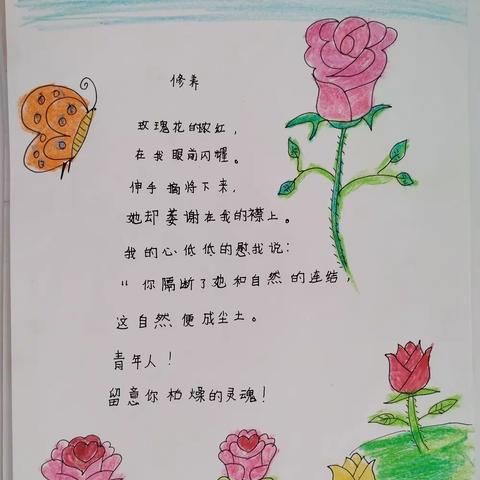 修养
玫瑰花的浓红，
在我眼前闪耀。
伸手摘将下来，
她却萎谢在我的襟上。
我的心低低的慰我说：
“你隔断了她和自然的连结，
这自然便成尘土。
青年人！
留意你枯燥的灵魂！